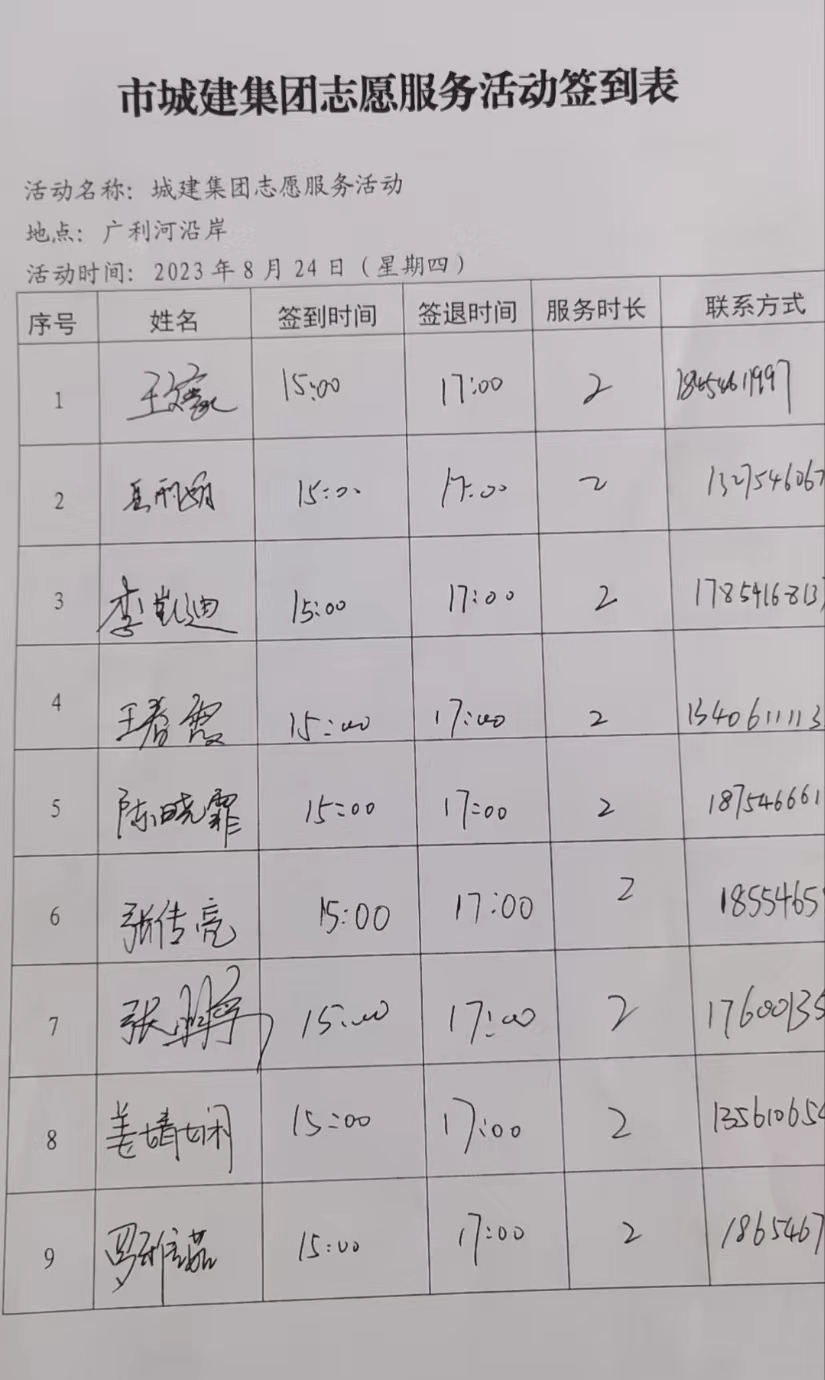 市城建集团志愿服务活动签到表
活动名称：城建集团志愿服务活动
地点：广利河沿岸
活动时间：2023年8月24日（星期四）
序号 姓名 签到时间 签退时间 服务时长 联系方式
1 15:00 17:00 2
2 15:00 17:00 2 1327546067
3 李凯迪 15:00 17:00 2 1785416813
4 王春霞 15:00 17:00 2 1340611113
5 陈晓霏 15:00 17:00 2 187546661
6 张传亮 15:00 17:00 2 18554465
7 张 15:00 17:00 2 17600135
8 姜婧娴 15:00 17:00 2 135610654
9 罗 15:00 17:00 2 1865467